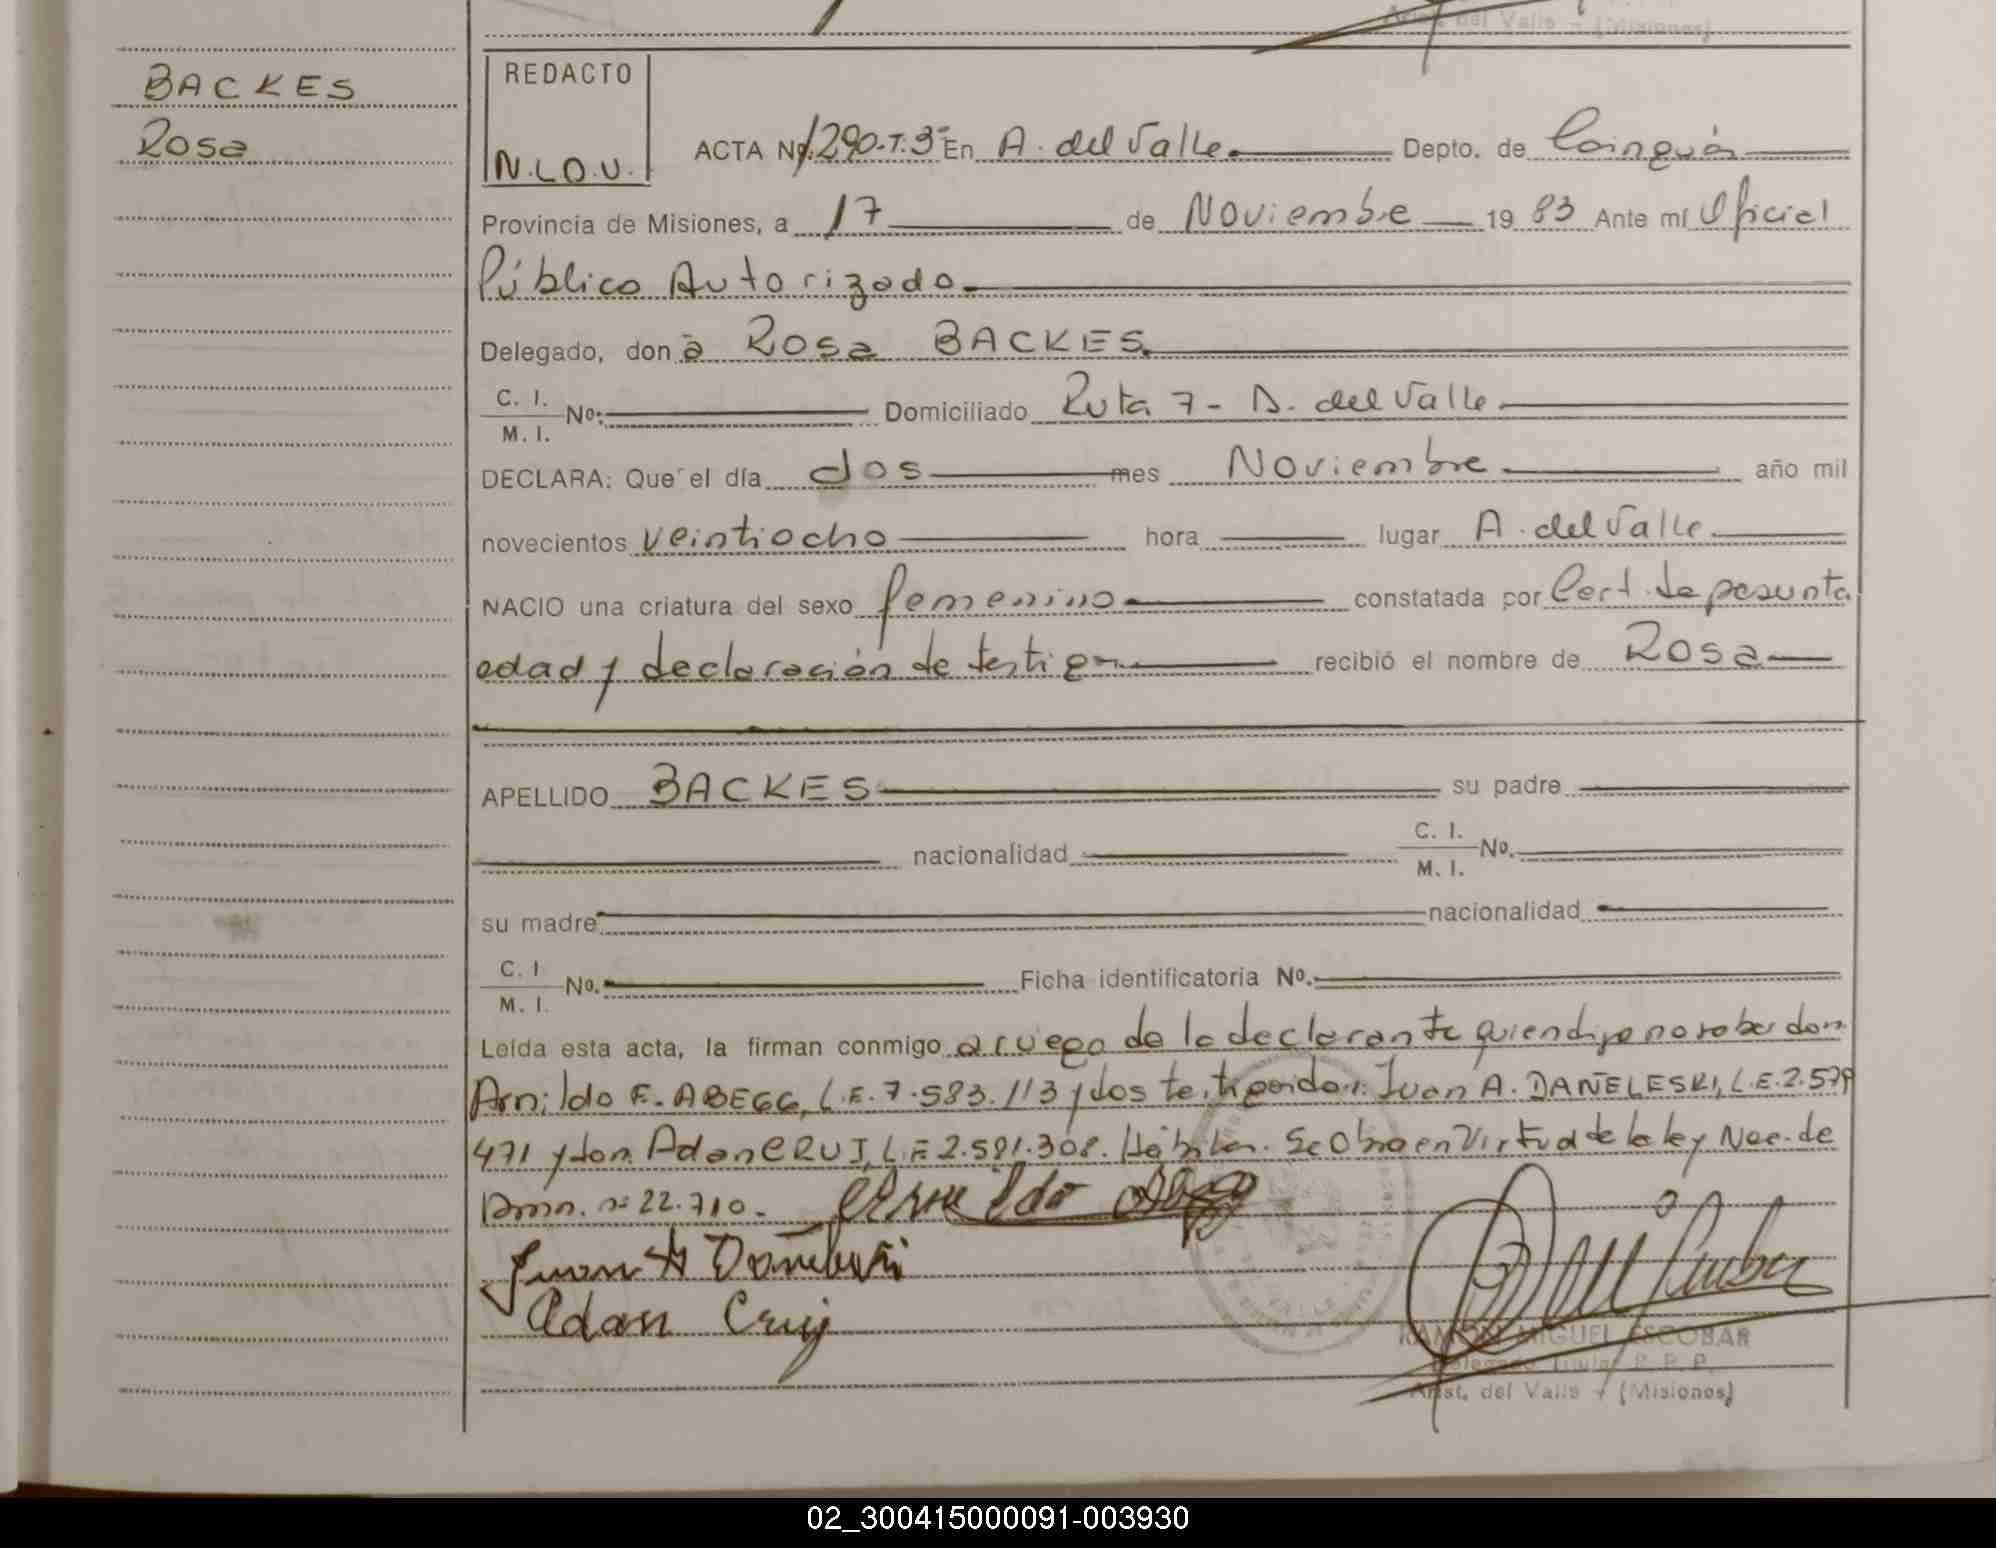 Arist. del Valle - (Misiones)
BACKES
Rosa
REDACTO
N.L.O.U.
ACTA Nº 1290-T.3º En A. del Valle Depto. de Cainguás
Provincia de Misiones, a 17 de Noviembre 1983 Ante mí Oficial
Público Autorizado
Delegado, don a Rosa BACKES.
C. I.
M. I. Nº: Domiciliado Ruta 7 - A. del Valle
DECLARA: Que el día dos mes Noviembre año mil
novecientos veintiocho hora lugar A. del Valle
NACIO una criatura del sexo femenino constatada por Cert. de pesunta
edad y declaración de testigos recibió el nombre de Rosa
APELLIDO BACKES su padre
nacionalidad C. I.
M. I. Nº.
su madre nacionalidad
C. I
M. I. Nº. Ficha identificatoria Nº.
Leída esta acta, la firman conmigo a ruego de la declarante quien dijo no saber don
Arnildo F. ABEGG, L.E. 7.583.113 y dos testigos don: Juan A. DAÑELESKI, L.E. 2.579
471 y don Adan CRUJ, L.E 2.581.308. Hábiles. Se Obra en Virtud de la ley Nac. de
Amn. nº 22.710.
Juan A Dañeleski
Adan Cruj
RAMON MIGUEL ESCOBAR
Delegado Titular R. P. P.
Arist. del Valle - (Misiones)
02_300415000091-003930